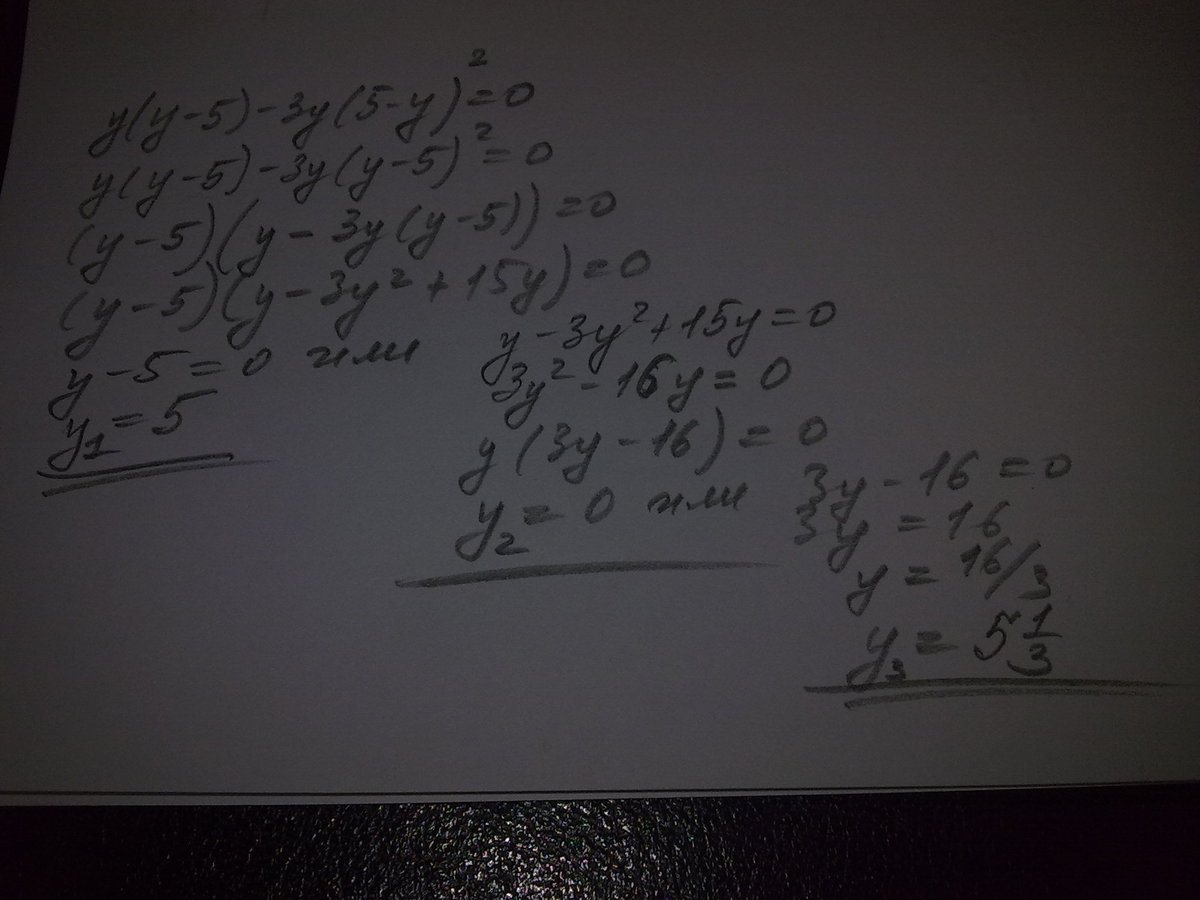 y(y-5)-3y(5-y)²=0
y(y-5)-3y(y-5)²=0
(y-5)(y-3y(y-5))=0
(y-5)(y-3y²+15y)=0
y-5=0 или y-3y²+15y=0
y₁=5
3y²-16y=0
y(3y-16)=0
y₂=0 или 3y-16=0
3y=16
y=16/3
y₃=5 1/3